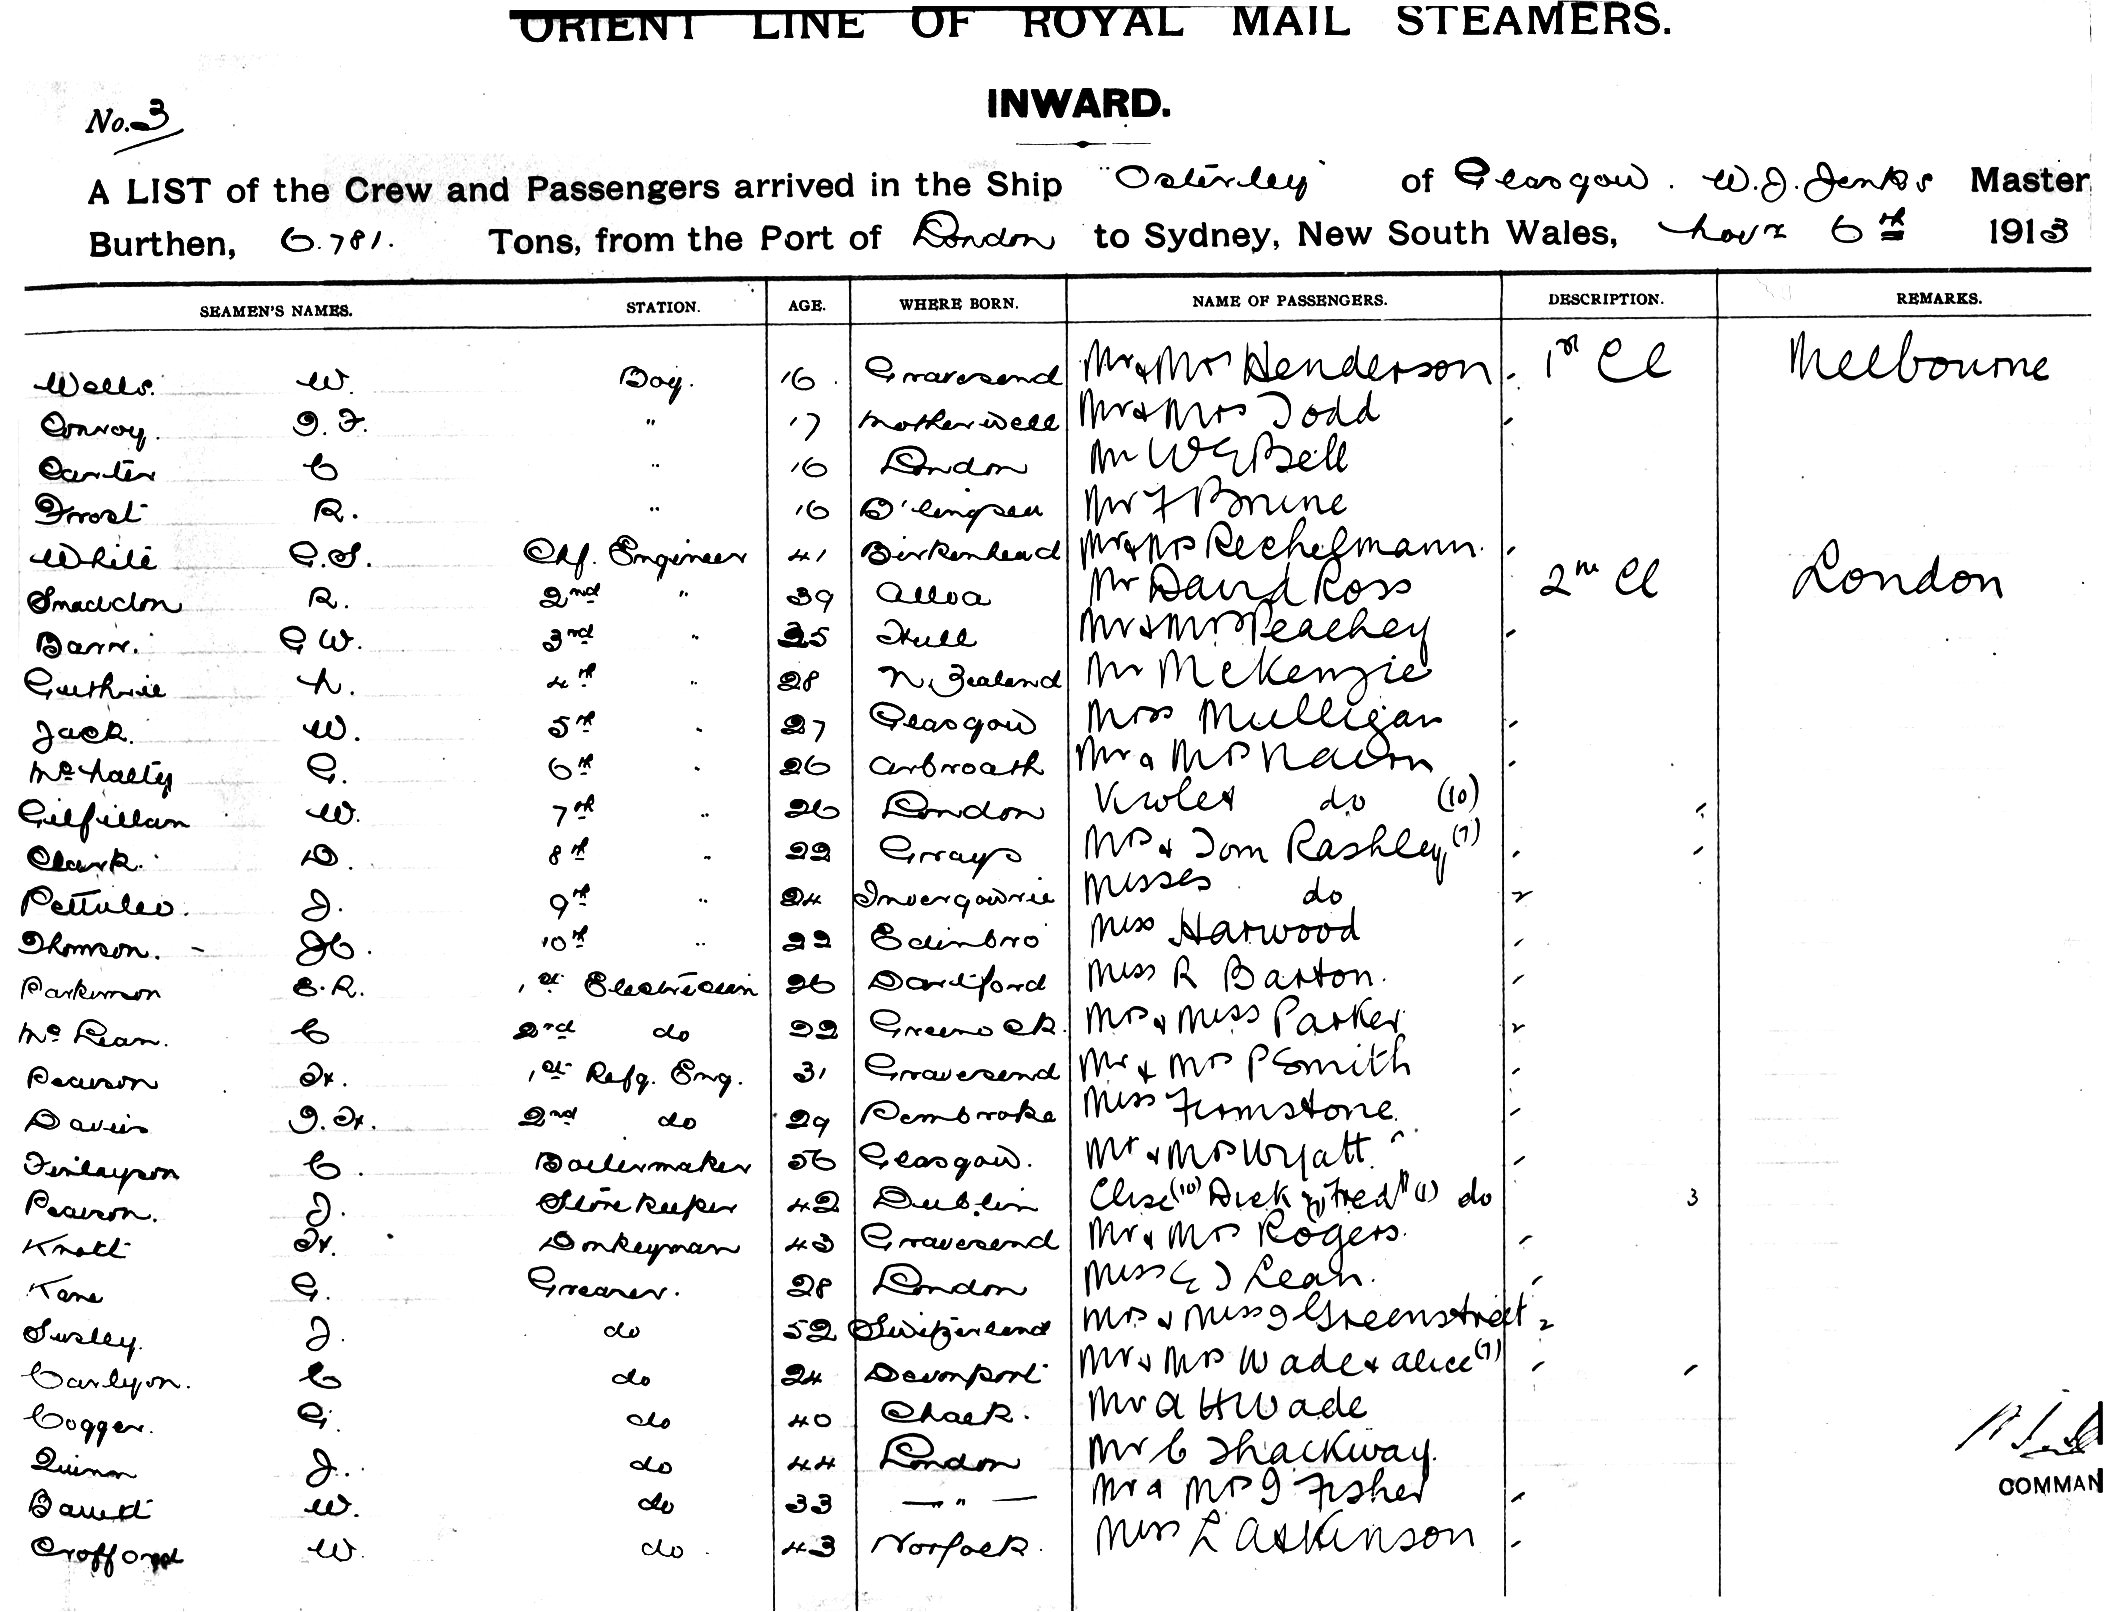 ORIENT LINE OF ROYAL MAIL STEAMERS.
INWARD.
No. 3
A LIST of the Crew and Passengers arrived in the Ship "Osterley" of Glasgow. W.J. Jenks Master
Burthen, 6.781. Tons, from the Port of London to Sydney, New South Wales, Novr 6th 1913
SEAMEN'S NAMES. STATION. AGE. WHERE BORN. NAME OF PASSENGERS. DESCRIPTION. REMARKS.
Wells. W. Boy. 16. Gravesend Mr & Mrs Henderson 1st Cl Melbourne
Conroy. J. F. " 17 Motherwell Mr & Mrs Todd
Carter C " 16 London Mr W E Bell
Frost R. " 16 B'lingsea Mr F Brune
White G.S. Chf. Engineer 41 Birkenhead Mr & Mrs Rechelmann
Snaddon R. 2nd " 39 Alloa Mr David Ross 2nd Cl London
Barr. G W. 3rd " 25 Hull Mr & Mrs Peachey
Guthrie N. 4th " 28 N. Zealand Mr McKenzie
Jack. W. 5th " 27 Glasgow Miss Mulligan
G. 6th " 26 Arbroath Mr & Mrs Nairn
Gilfillan W. 7th " 26 London Violet do (10)
Clark. D. 8th " 22 Grays Mrs & Tom Rashley (7)
J. 9th " 24 Invergowrie Misses do 2
Thomson. 10th " 22 Edinbro Miss Harwood
Parkinson E.R. 1st Electrician 26 Dartford Miss R Barton.
McLean. C 2nd do 22 Greenock. Mrs & Miss Parker 2
Pearson H. 1st Refg. Eng. 31 Gravesend Mr & Mrs P Smith
Davies J. H. 2nd do 29 Pembroke Miss Firmstone
Finlayson C. Boilermaker 56 Glasgow. Mr & Mrs Wyatt
Pearson. J. Storekeeper 42 Dublin (10) Dick Fred do 3
Knott H. Donkeyman 43 Gravesend Mr & Mrs Rogers.
Kane G. Greaser. 28 London Miss E J Lean.
J. do 52 Switzerland Mrs & Miss J Greenstreet 2
Carlyon. C do 24 Devonport Mr & Mrs Wade & Alice (7)
Cogger. G. do 40 Chalk. Mr A H Wade
Quinn J. do 44 London Mr C Thackway.
Barrett W. do 33 — " — Mr & Mrs J Fisher
Crofford W. do. 43 Norfolk. Miss L Atkinson
COMMAN